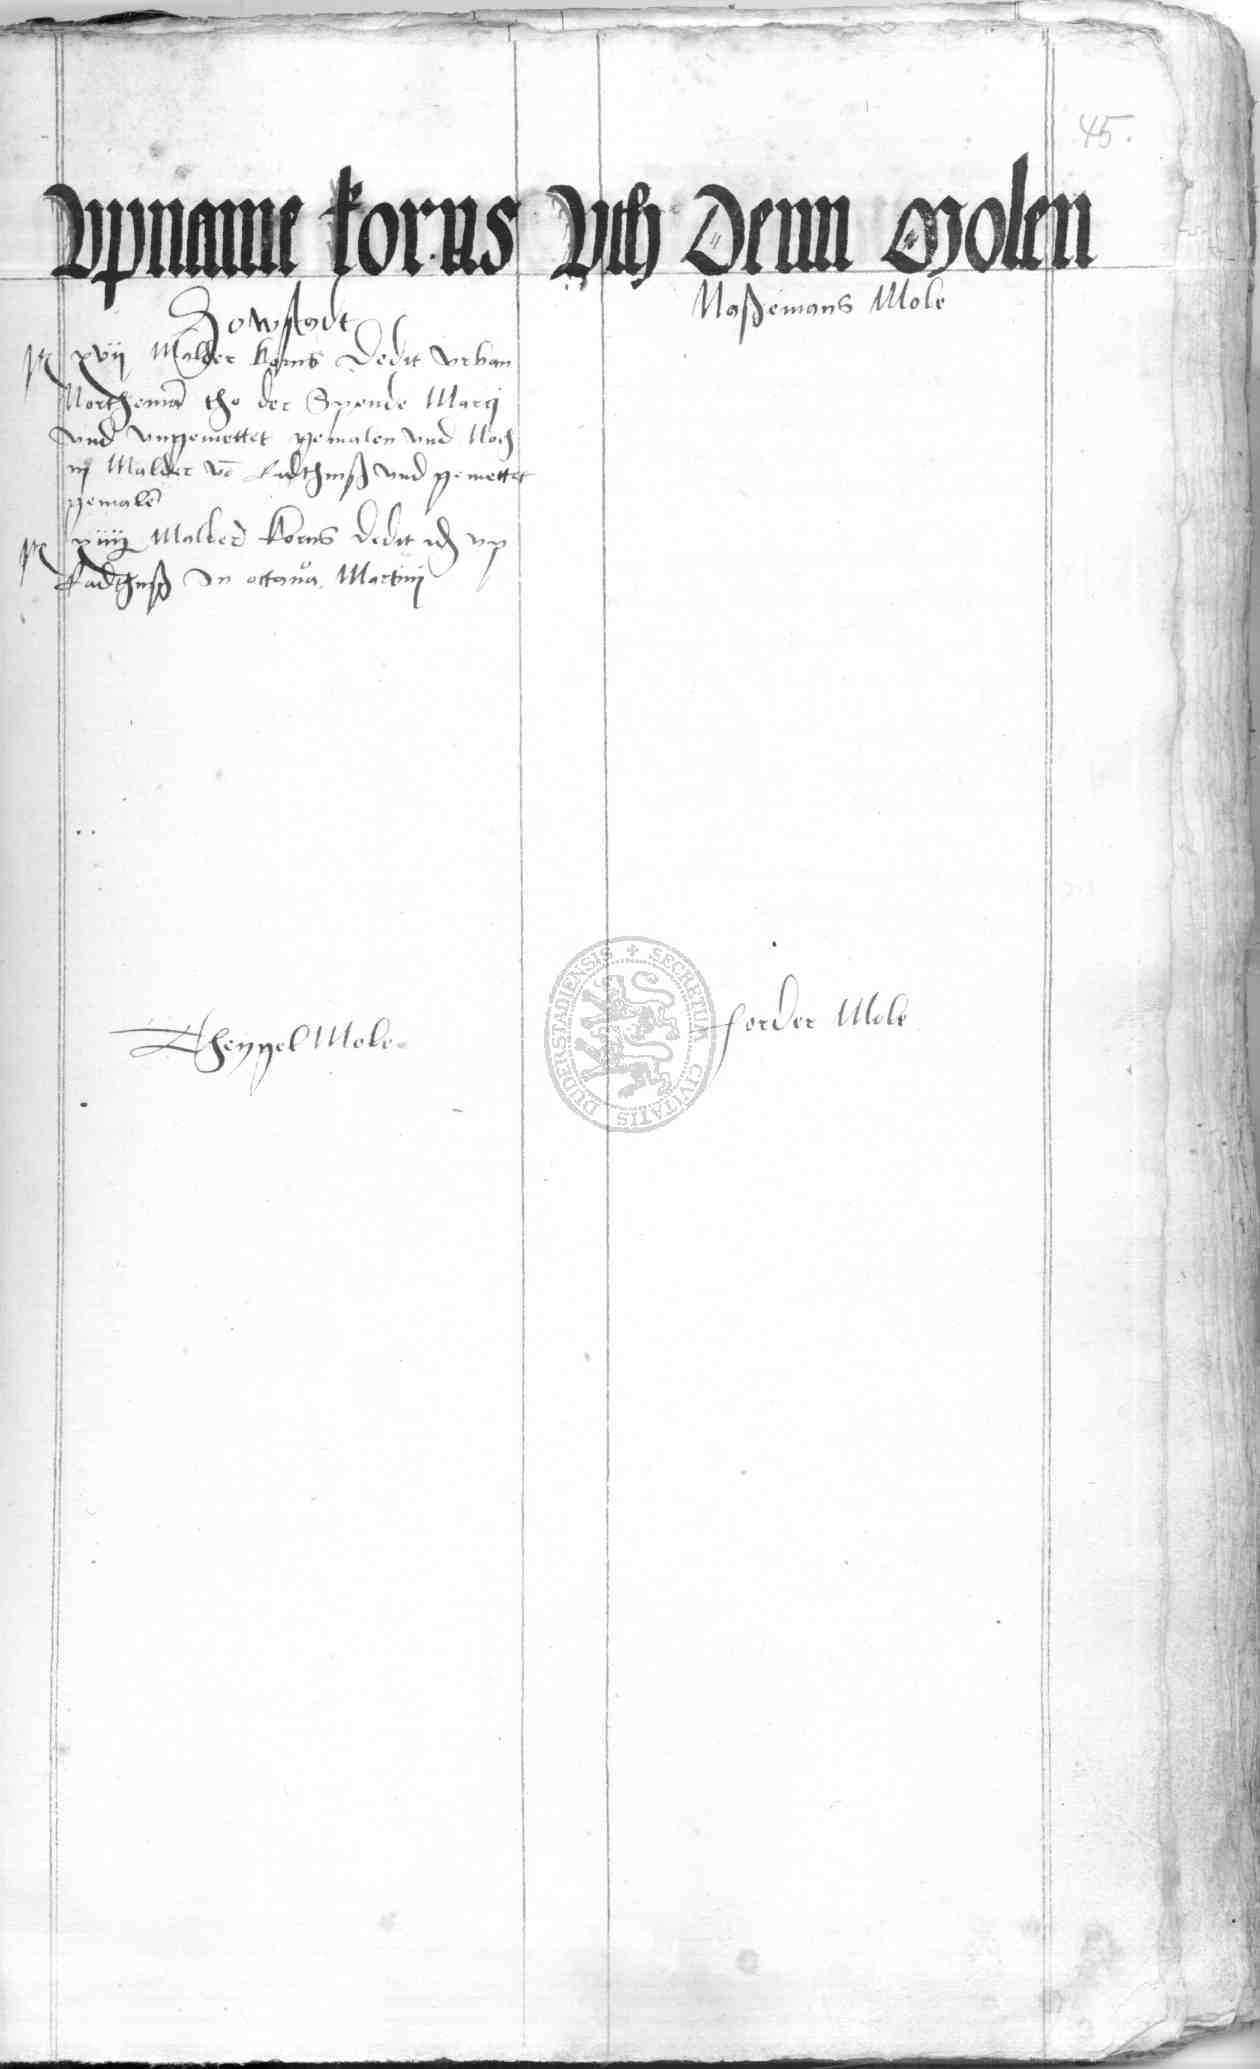 45.
Vpname korns Vth Denn Molen
Howstadt
xvij Malder korns Dedit vrban
Northemā tho der Spende Marci
vnd vngemettet gemalen vnd Noch
iij Malder vē fadthinß vnd gemettet
gemalē
xiiij Malder korns dedit idē vp
fadthinß In octaua Martinj
Naßemans Mole
Theygel Mole
forder Mole
SECRETUM CIVITATIS DUDERSTADIENSIS